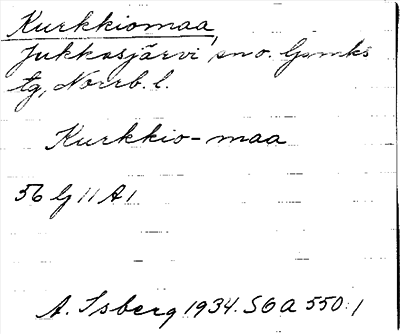 Kurkkiomaa,
Jukkasjärvi sn o. Gmks
tg, Norrb. l.
Kurkkio-maa
56 G 11 A 1
A. Isberg 1934. SOA 550:1